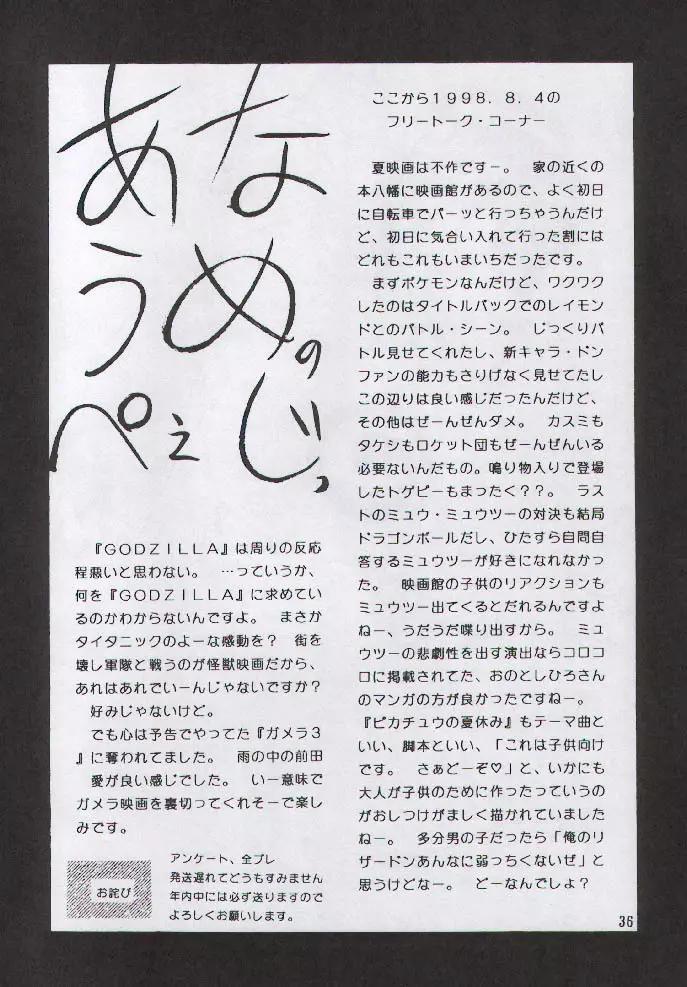 なめのじっ
あうぺぇ
『GODZILLA』は周りの反応
程悪いと思わない。 …っていうか、
何を『GODZILLA』に求めてい
るのかわからないんですよ。 まさか
タイタニックのよーな感動を? 街を
壊し軍隊と戦うのが怪獣映画だから、
あれはあれでいーんじゃないですか?
好みじゃないけど。
でも心は予告でやってた『ガメラ3
』に奪われてました。 雨の中の前田
愛が良い感じでした。 いー意味で
ガメラ映画を裏切ってくれそーで楽し
みです。
お詫び
アンケート、全プレ
発送遅れてどうもすみません
年内中には必ず送りますので
よろしくお願いします。
ここから1998.8.4の
フリートーク・コーナー
夏映画は不作ですー。 家の近くの
本八幡に映画館があるので、よく初日
に自転車でパーッと行っちゃうんだけ
ど、初日に気合い入れて行った割には
どれもこれもいまいちだったです。
まずポケモンなんだけど、ワクワク
したのはタイトルバックでのレイモン
ドとのバトル・シーン。 じっくりバ
トル見せてくれたし、新キャラ・ドン
ファンの能力もさりげなく見せてたし
この辺りは良い感じだったんだけど、
その他はぜーんぜんダメ。 カスミも
タケシもロケット団もぜーんぜんいる
必要ないんだもの。鳴り物入りで登場
したトゲピーもまったく??。 ラス
トのミュウ・ミュウツーの対決も結局
ドラゴンボールだし、ひたすら自問自
答するミュウツーが好きになれなかっ
た。 映画館の子供のリアクションも
ミュウツー出てくるとだれるんですよ
ねー、うだうだ喋り出すから。 ミュ
ウツーの悲劇性を出す演出ならコロコ
ロに掲載されてた、おのとしひろさん
のマンガの方が良かったですねー。
『ピカチュウの夏休み』もテーマ曲と
いい、脚本といい、「これは子供向け
です。 さぁどーぞ♡」と、いかにも
大人が子供のために作ったっていうの
がおしつけがましく描かれていました
ねー。 多分男の子だったら「俺のリ
ザードンあんなに弱っちくないぜ」と
思うけどなー。 どーなんでしょ?
36